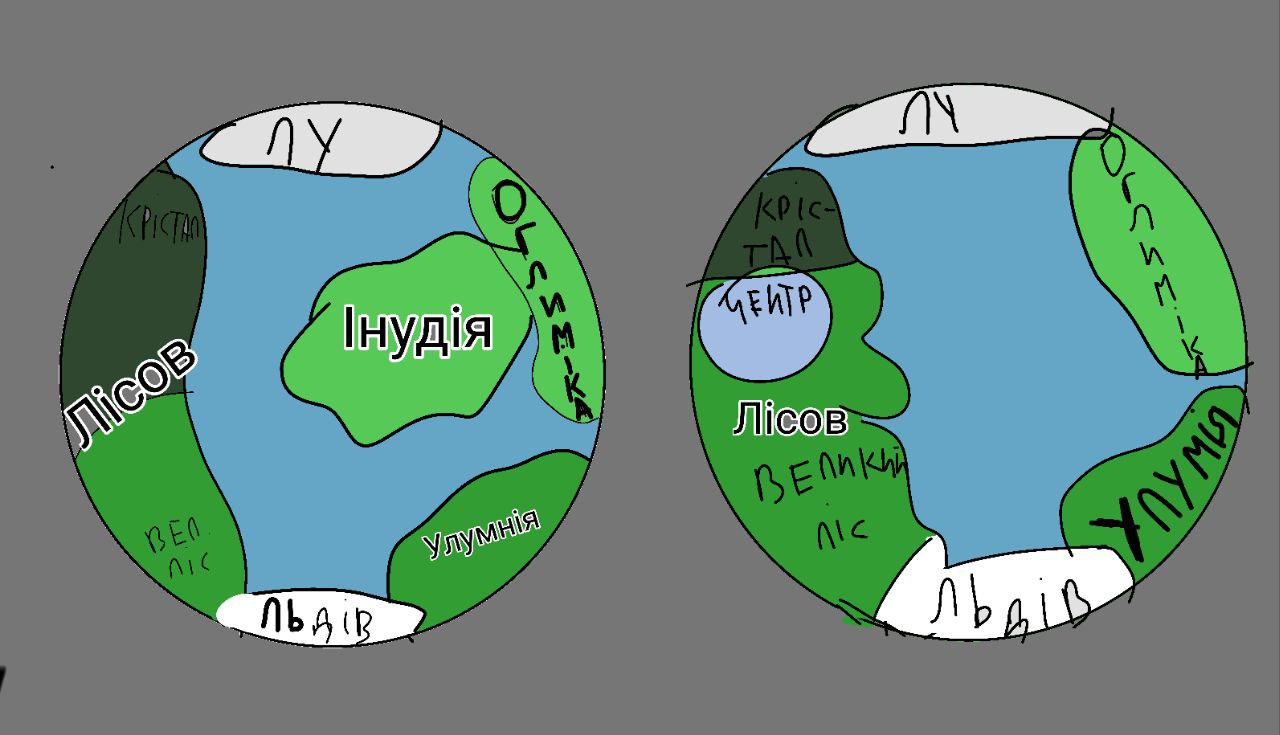 ЛУ
КРІСТАЛ
ОГЛИМІКА
Інудія
Лісов
ВЕЛ.
ЛІС
Улумнія
ЛЬДІВ
ЛУ
КРІС-
ТАЛ
ОГЛИМІКА
ЦЕНТР
Лісов
ВЕЛИКИЙ
ЛІС
УЛУМІЯ
ЛЬДІВ